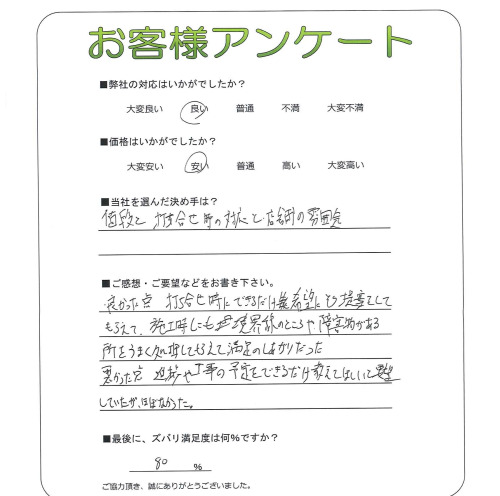 お客様アンケート
■弊社の対応はいかがでしたか？
大変良い 良い 普通 不満 大変不満
■価格はいかがでしたか？
大変安い 安い 普通 高い 大変高い
■当社を選んだ決め手は？
価段と 打ち合せ時の対応と、店舗の雰囲気
■ご感想・ご要望などをお書き下さい。
良かった点 打ち合せ時にできるだけ希望にそう提案をして
もらえて、施工時にも 境界線のところや障害物がある
所をうまく処理してもらえて満足のしあがりだった
悪かった点 進捗や工事の予定をできるだけ教えてほしいと要望
していたが、ほぼなかった。
■最後に、ズバリ満足度は何％ですか？
80 ％
ご協力頂き、誠にありがとうございました。